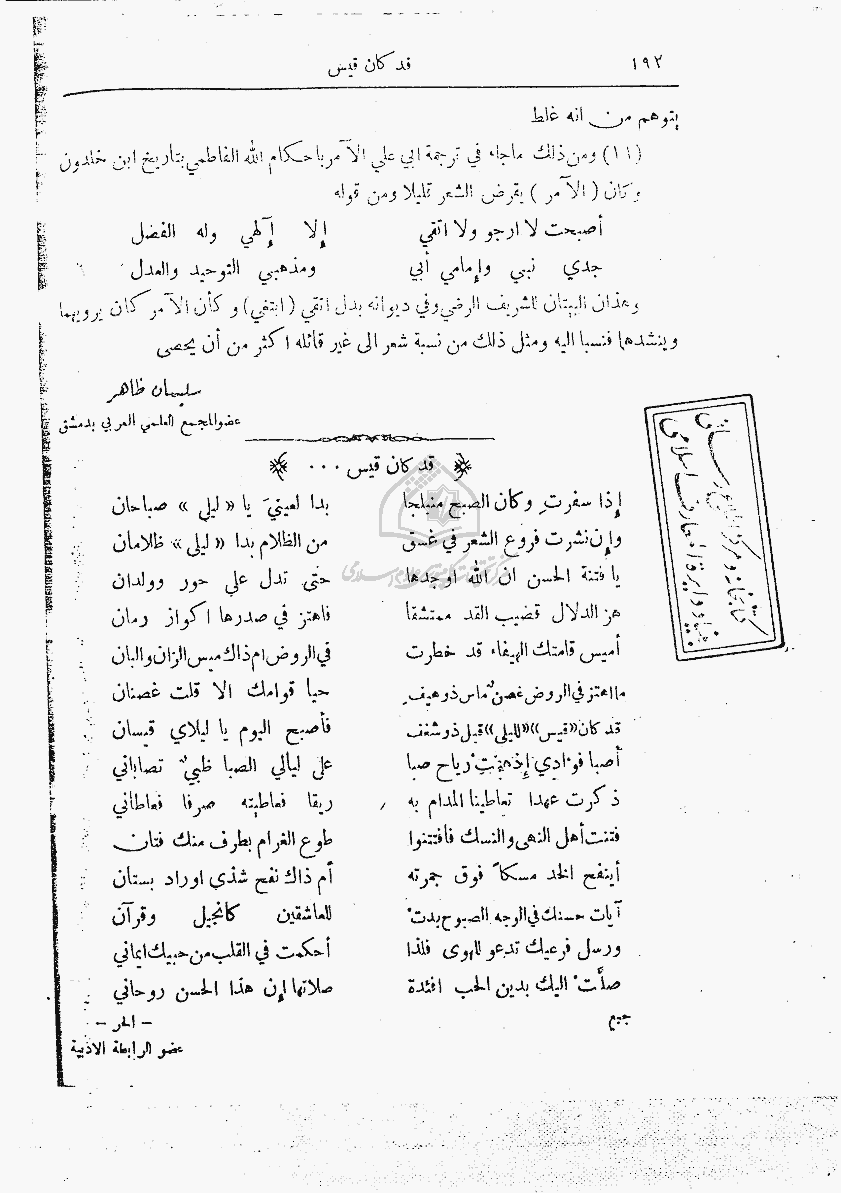 ١٩٢ قد كان قيس
يتوهم من انه غلط
(١١) ومن ذلك ماجاء في ترجمة ابي علي الآمر باحكام الله الفاطمي بتاريخ ابن خلدون
وكان (الآمر) يقرض الشعر قليلا ومن قوله
أصبحت لا ارجو ولا اتقي إلا إلهي وله الفضل
جدي نبي وإمامي أبي ومذهبي التوحيد والعدل
وهذان البيتان للشريف الرضي وفي ديوانه بدل اتقي (ابتغي) وكأن الآمر كان يرويهما
وينشدهما فنسبا اليه ومثل ذلك من نسبة شعر الى غير قائله اكثر من أن يحصى
سليمان ظاهر
عضو المجمع العلمي العربي بدمشق
قد كان قيس ...
إذا سفرتِ وكان الصبح منبلجا بدا لعينيَ يا «ليلى» صباحان
وإن نشرت فروع الشعر في غسق من الظلام بدا «ليلى» ظلامان
يا فتنة الحسن ان الله اوجدها حتى تدل على حور وولدان
هز الدلال قضيب القد ممتشقا فاهتز في صدرها اكواز رمان
أميس قامتك الهيفاء قد خطرت في الروض ام ذاك ميس الزان والبان
ما اهتز في الروض غصنٌ ماس ذو هيف حيا قوامك الا قلت غصنان
قد كان «قيس» «لليلى» قبل ذو شغف فأصبح اليوم يا ليلاي قيسان
أصبا فؤادي إذ هبتْ رياح صبا على ليالي الصبا ظبيٌ تصاباني
ذكرت عهدا تعاطينا المدام به ريقا فعاطيته صرفا فعاطاني
فتنت أهل النهى والنسك فأفتتنوا طوع الغرام بطرف منك فتان
أينفح الخد مسكاً فوق جمرته أم ذاك نفح شذى اوراد بستان
آيات حسنك في الوجه الصبوح بدتْ للعاشقين كانجيل وقرآن
ورسل فرعيك تدعو للهوى فلذا أحكمت في القلب من حبيك ايماني
صلّتْ اليك بدين الحب افئدة صلاتها إن هذا الحسن روحاني
جبع – الحر –
عضو الرابطة الادبية
كتابخانه ومركز اطلاع رسانى
بنياد دايرة المعارف اسلامى